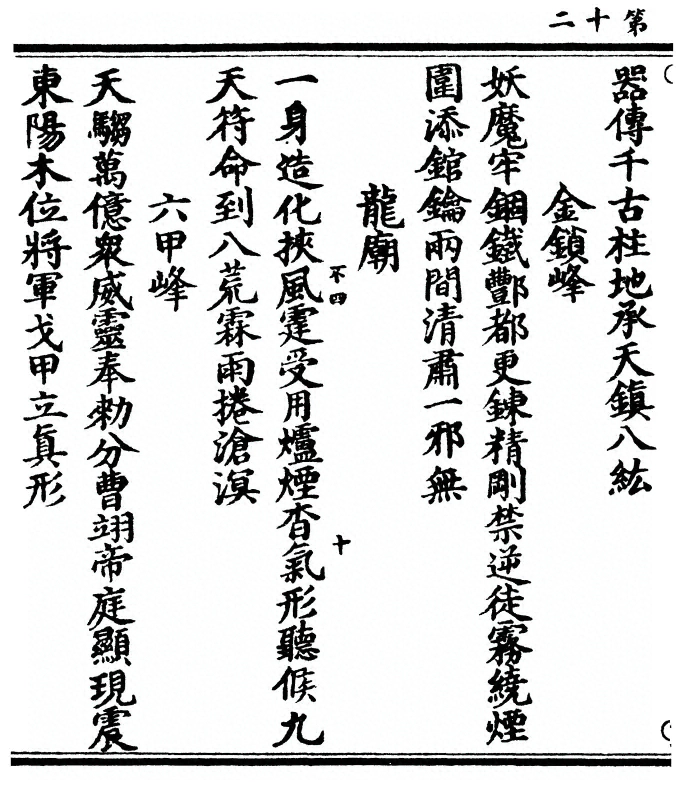 第十二
器傳千古柱地承天鎮八紘
金鎖峰
妖魔牢錮鐵酆都更鍊精剛禁逆徒霧繞煙
圍添錧鑰兩間清肅一邪無
龍廟
不四
十
一身造化挾風霆受用爐煙杳氣形聽候九
天符命到八荒霖雨捲滄溟
六甲峰
天騶萬億衆威靈奉勑分曹翊帝庭顯現震
東陽木位將軍戈甲立真形